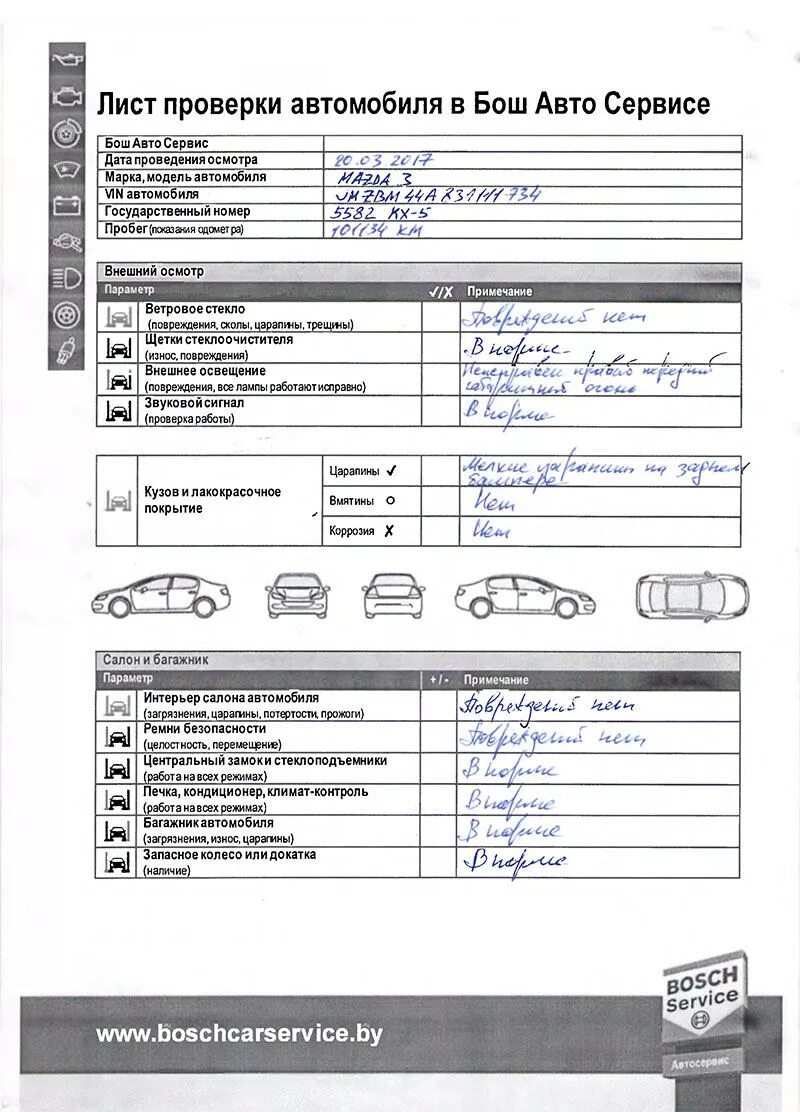 Лист проверки автомобиля в Бош Авто Сервисе
Бош Авто Сервис
Дата проведения осмотра 20.03 2017
Марка, модель автомобиля MAZDA 3
VIN автомобиля
Государственный номер 5582 KX-5
Пробег (показания одометра) 101134 КМ
Внешний осмотр
Параметр ✓/X Примечание
Ветровое стекло Повреждений нет
(повреждения, сколы, царапины, трещины)
Щетки стеклоочистителя В норме
(износ, повреждения)
Внешнее освещение Неисправен правый передний
(повреждения, все лампы работают исправно) габаритный огонь
Звуковой сигнал В норме
(проверка работы)
Кузов и лакокрасочное
покрытие
Царапины ✓ Мелкие царапины на заднем
бампере
Вмятины О Нет
Коррозия Х Нет
Салон и багажник
Параметр +/- Примечание
Интерьер салона автомобиля Повреждений нет
(загрязнения, царапины, потертости, прожоги)
Ремни безопасности Повреждений нет
(целостность, перемещение)
Центральный замок и стеклоподъемники В норме
(работа на всех режимах)
Печка, кондиционер, климат-контроль В норме
(работа на всех режимах)
Багажник автомобиля В норме
(загрязнения, износ, царапины)
Запасное колесо или докатка В норме
(наличие)
BOSCH
Service
www.boschcarservice.by
Автосервис